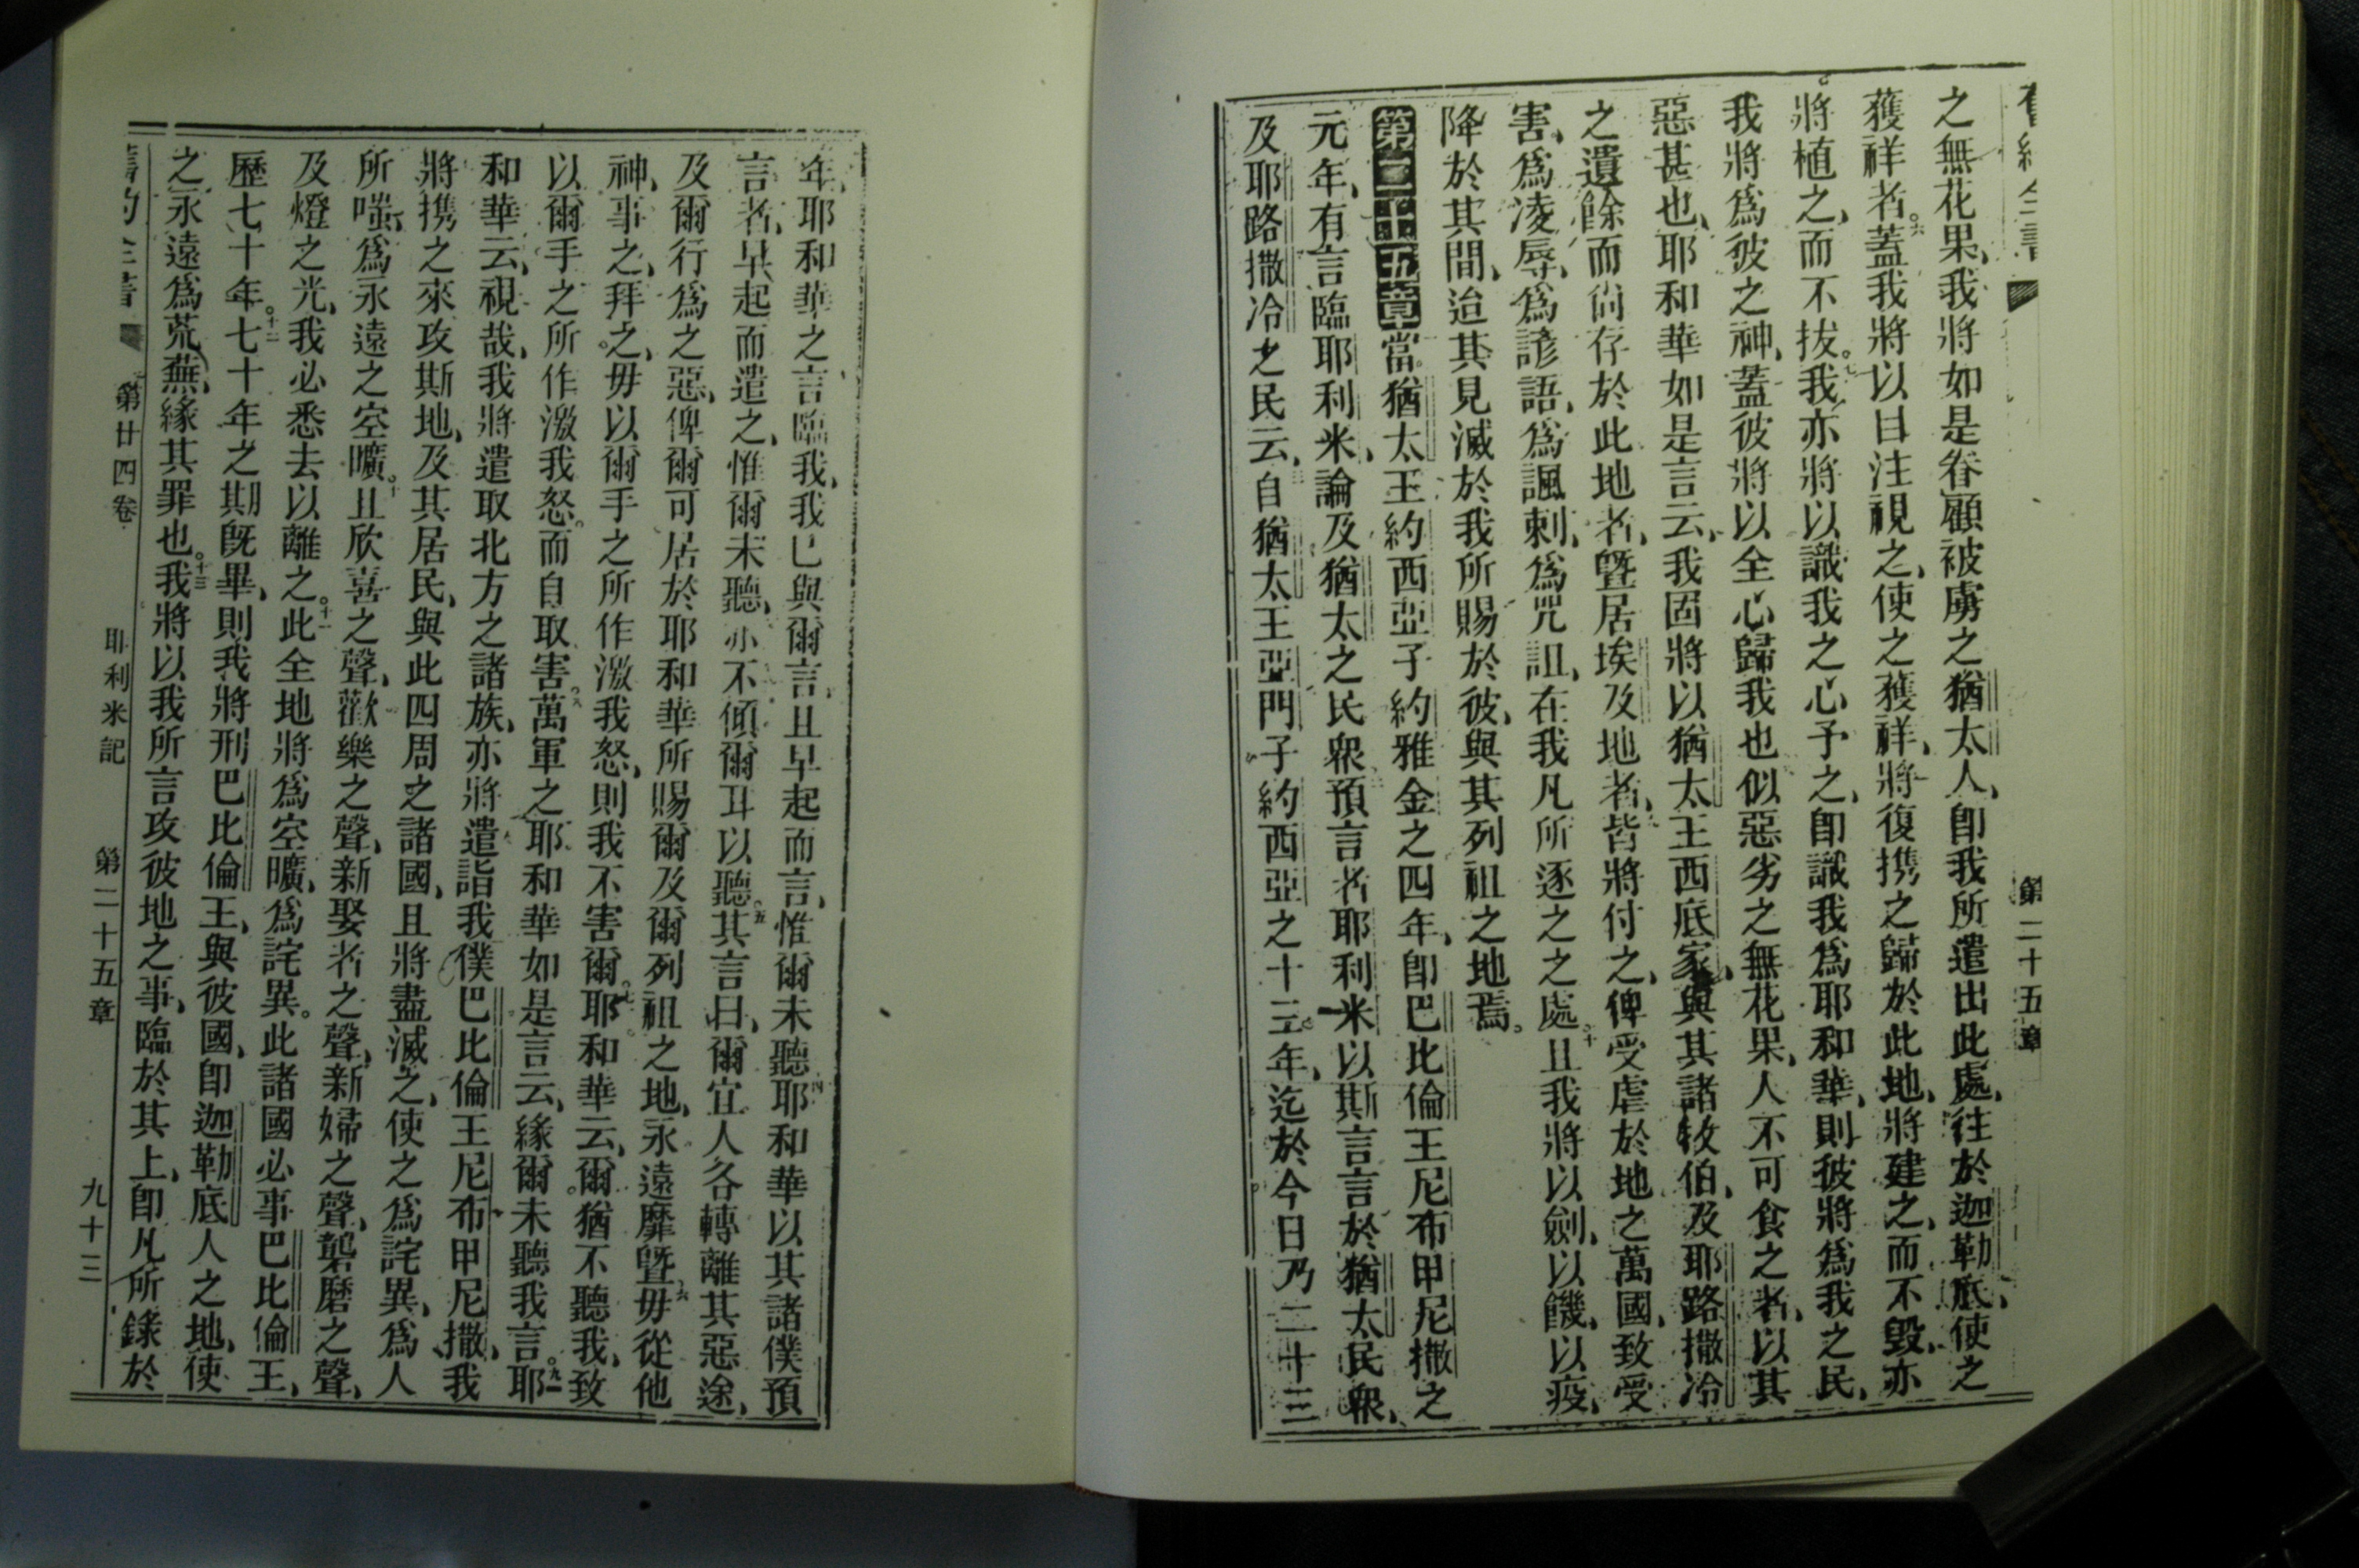 舊約全書
第二十五章
之無花果、我將如是眷顧被虜之猶太人、卽我所遣出此處、往於迦勒底、使之
獲祥者。六蓋我將以目注視之、使之獲祥、將復携之歸於此地、將建之、而不毀、亦
將植之、而不拔。七我亦將以識我之心予之、卽識我爲耶和華、則彼將爲我之民、
我將爲彼之神、蓋彼將以全心歸我也似惡劣之無花果、人不可食之者、以其
惡甚也、耶和華如是言云、我固將以猶太王西底家、與其諸牧伯、及耶路撒冷
之遺餘而尙存於此地者、曁居埃及地者、皆將付之、俾受虐於地之萬國、致受
害、爲凌辱、爲諺語、爲諷刺、爲咒詛、在我凡所逐之之處。十且我將以劍、以饑、以疫、
降於其間、迨其見滅於我所賜於彼、與其列祖之地焉。
第二十五章當猶太王約西亞子約雅金之四年、卽巴比倫王尼布甲尼撒之
元年、有言臨耶利米、論及猶太之民衆預言者耶利米以斯言言於猶太民衆、
及耶路撒冷之民云、自猶太王亞門子約西亞之十三年、迄於今日乃二十三
年、耶和華之言臨我、我已與爾言、且早起而言、惟爾未聽四耶和華以其諸僕預
言者、早起而遣之、惟爾未聽、亦不傾爾耳以聽。五其言曰、爾宜人各轉離其惡途、
及爾行爲之惡、俾爾可居於耶和華所賜爾及爾列祖之地、永遠靡曁六毋從他
神、事之、拜之、毋以爾手之所作激我怒、則我不害爾。七耶和華云、爾猶不聽我、致
以爾手之所作激我怒。而自取害。八萬軍之耶和華如是言云、緣爾未聽我言。九耶
和華云、視哉、我將遣取北方之諸族、亦將遣詣我僕巴比倫王尼布甲尼撒、我
將携之來攻斯地、及其居民、與此四周之諸國、且將盡滅之、使之爲詫異、爲人
所嗤、爲永遠之空曠。十且欣喜之聲、歡樂之聲、新娶者之聲、新婦之聲、磐磨之聲、
及燈之光、我必悉去以離之。十一此全地將爲空曠、爲詫異。此諸國必事巴比倫王、
歷七十年。十二七十年之期旣畢、則我將刑巴比倫王、與彼國、卽迦勒底人之地、使
之永遠爲荒蕪、緣其罪也。十三我將以我所言攻彼地之事、臨於其上、卽凡所錄於
舊約全書
第廿四卷
耶利米記
第二十五章
九十三